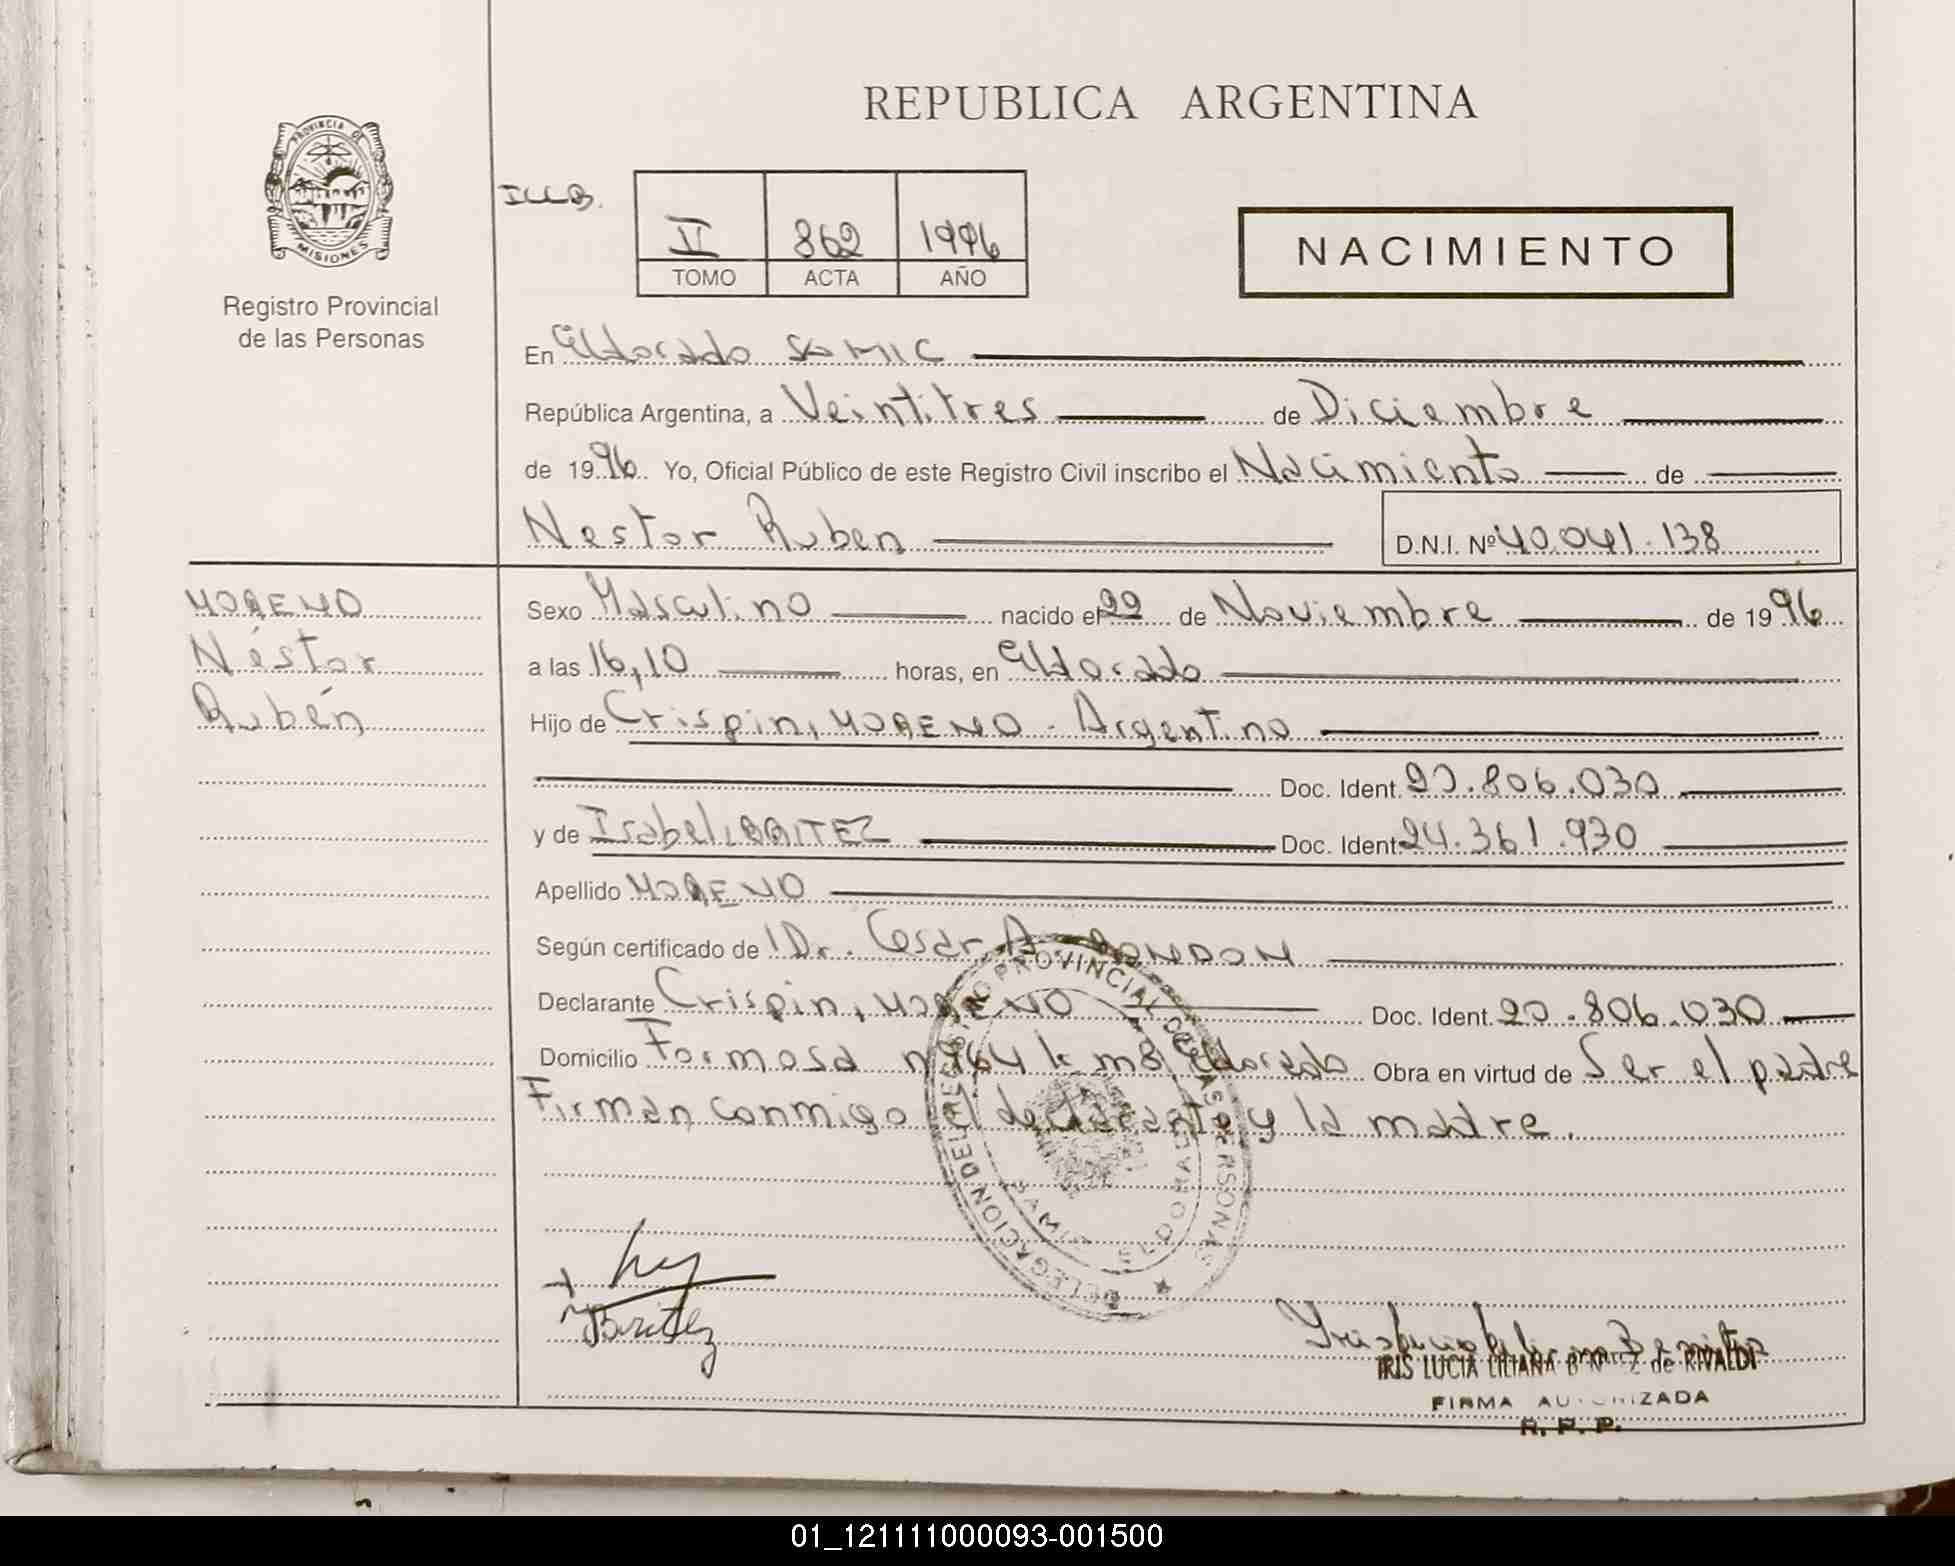 REPUBLICA ARGENTINA
PROVINCIA DE
MISIONES
Registro Provincial
de las Personas
ILLB.
II 862 1996
TOMO ACTA AÑO
NACIMIENTO
En Eldorado SAMIC
República Argentina, a Veintitres de Diciembre
de 1996. Yo, Oficial Público de este Registro Civil inscribo el Nacimiento de
Nestor Ruben D.N.I. Nº 40.041.138
MORENO
Néstor
Rubén
Sexo Masculino nacido el 22 de Noviembre de 1996
a las 16,10 horas, en Eldorado
Hijo de Crispin, MORENO - Argentino
Doc. Ident. 20.806.030
y de Isabel, BRITEZ Doc. Ident. 24.361.930
Apellido MORENO
Según certificado de Dr. Cesar A. RONDON
Declarante Crispin, MORENO Doc. Ident. 20.806.030
Domicilio Formosa nº 64 km 8, Eldorado Obra en virtud de Ser el padre
Firman conmigo el declarante y la madre.
DELEGACION DEL REGISTRO PROVINCIAL DE LAS PERSONAS
SAMIC ELDORADO
Britez
IRIS LUCIA LILIANA BENITEZ de RIVALDI
FIRMA AUTORIZADA
R. P. P.
01_121111000093-001500